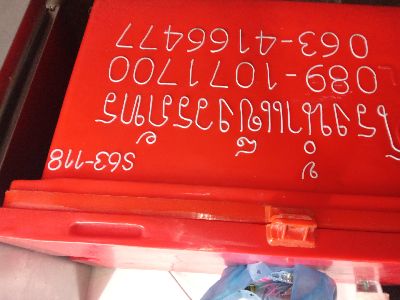 S63-118
โรงน้ำแข็งวรภัทร
089-1071700
063-4166477